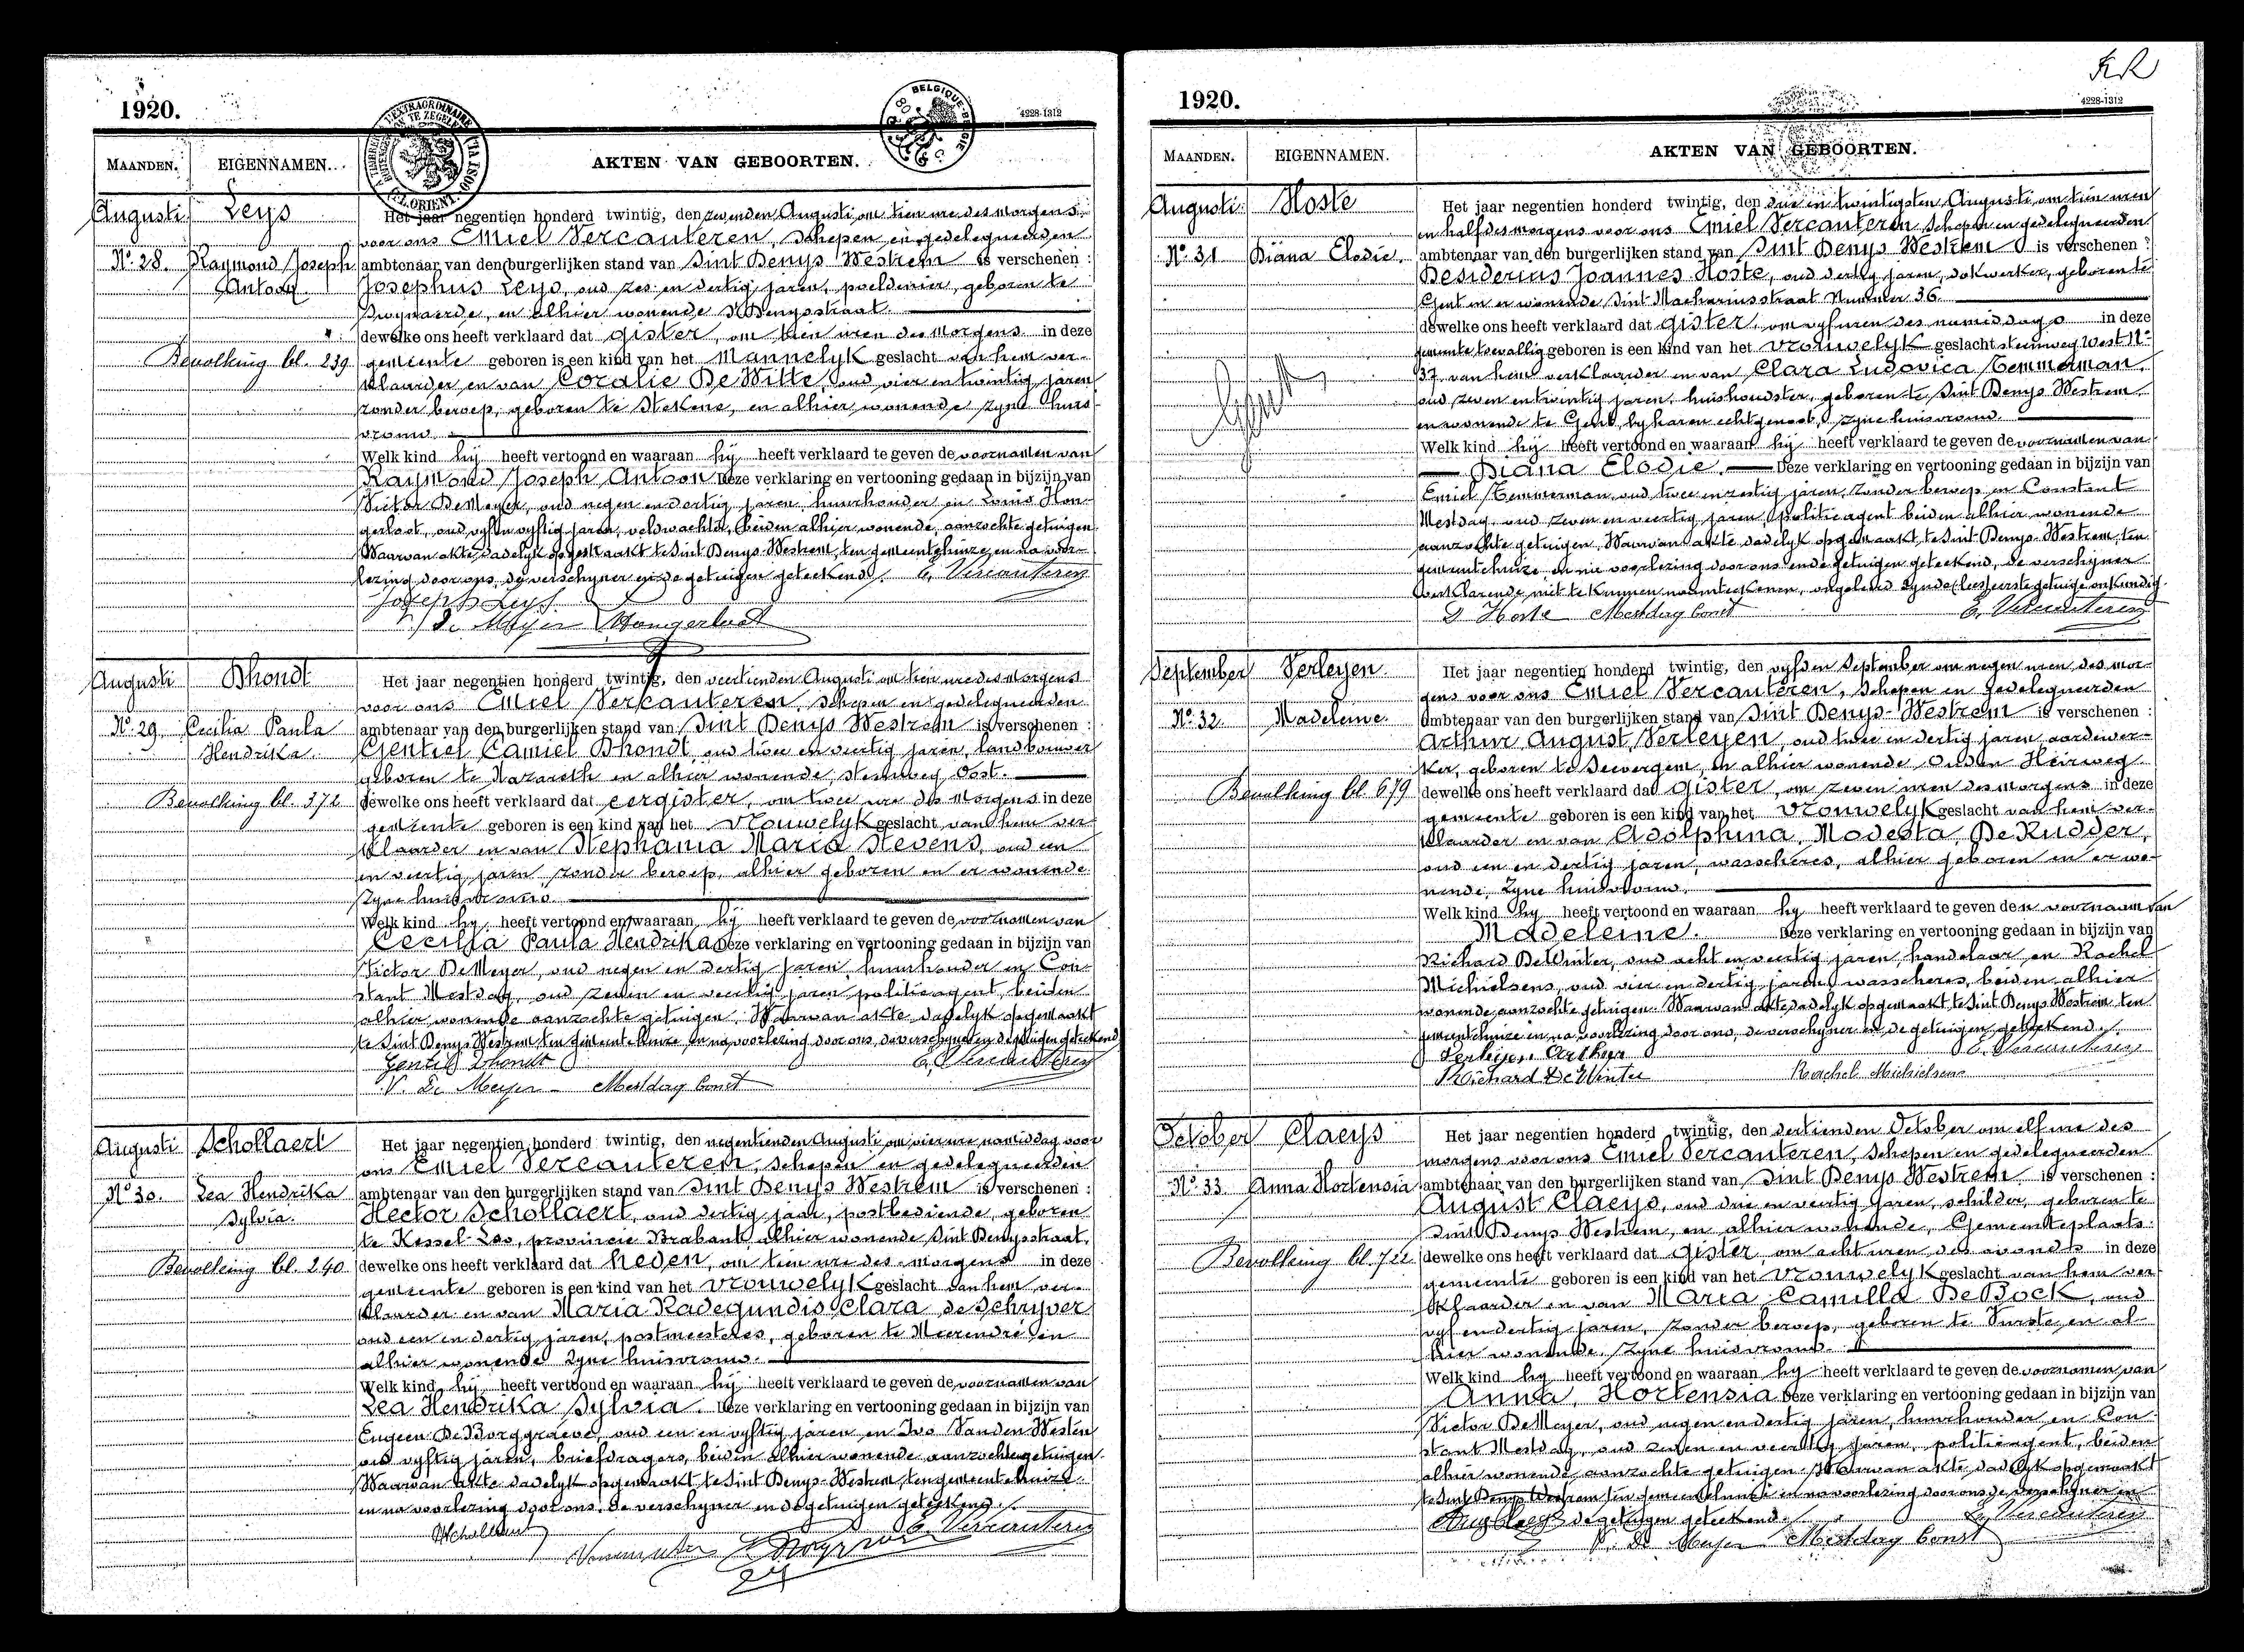 1920.
4228-1312
MAANDEN.
EIGENNAMEN.
AKTEN VAN GEBOORTEN.
Augusti
Leys
Nº 28.
Raymond Joseph
Antoon
Bevolking bl. 239
Het jaar negentien honderd twintig, den zevenden Augusti, om tien ure des morgens,
voor ons Emiel Vercauteren, schepen en gedelegueerden
ambtenaar van den burgerlijken stand van Sint Denys Westrem is verschenen :
Josephus Leys, oud zes en dertig jaren, poeldenier, geboren te
Zwynaarde, en alhier wonende St Denysstraat.
dewelke ons heeft verklaard dat gister, om tien uren des morgens in deze
gemeente geboren is een kind van het mannelyk geslacht van hem ver-
klaarder en van Coralie De Witte, oud vier en twintig jaren
zonder beroep, geboren te Stekene, en alhier wonende zyne huis-
vrouw.
Welk kind hij heeft vertoond en waaraan hij heeft verklaard te geven de voornamen van
Raymond Joseph Antoon Deze verklaring en vertooning gedaan in bijzijn van
Victor DeMeyer, oud negen en dertig jaren, huurhouder en Louis Hon-
gerloot, oud vyf en vyftig jaren, veldwachter, beiden alhier wonende, aanzochte getuigen
Waarvan akte, dadelyk opgemaakt te Sint Denys-Westrem, ten gemeentehuize, en na voor-
lezing door ons, de verschyner en de getuigen geteekend. E. Vercauteren
Joseph Leys.
V. De Meyer Hongerloot
Augusti
Dhondt
Nº 29.
Cecilia Paula
Hendrika.
Bevolking bl. 372
Het jaar negentien honderd twintig, den veertienden Augusti om tien ure des morgens
voor ons Emiel Verkauteren, schepen en gedelegueerden
ambtenaar van den burgerlijken stand van Sint Denys Westrem is verschenen :
Gentiel Camiel Dhondt, oud twee en veertig jaren, landbouwer
geboren te Nazareth en alhier wonende, steenweg Oost.
dewelke ons heeft verklaard dat eergister, om twee ure des morgens in deze
gemeente geboren is een kind van het vrouwelyk geslacht van hem ver-
klaarder en van Stephania Maria Stevens, oud een
en veertig jaren zonder beroep, alhier geboren en er wonende
zyne huisvrouw.
Welk kind hy heeft vertoond en waaraan hij heeft verklaard te geven de voornamen van
Cecilia Paula Hendrika Deze verklaring en vertooning gedaan in bijzijn van
Victor DeMeyer, oud negen en dertig jaren huurhouder en Con-
stant Mestdag, oud zeven en veertig jaren politieagent, beiden
alhier wonende aanzochte getuigen. Waarvan akte dadelyk opgemaakt
te Sint Denys Westrem, ten gemeentehuize, en na voorlezing door ons, de verschyner en de getuigen geteekend
Gentiel Dhondt E. Vercauteren
V. De Meyer Mestdag Const
Augusti
Schollaert
Nº 30.
Lea Hendrika
Sylvia.
Bevolking bl. 240
Het jaar negentien honderd twintig, den negentienden Augusti, om vier ure namiddag voor
ons Emiel Vercauteren, schepen en gedelegueerden
ambtenaar van den burgerlijken stand van Sint Denys Westrem is verschenen :
Hector Schollaert, oud dertig jaar, postbediende, geboren
te Kessel-Loo, provincie Brabant, alhier wonende Sint Denysstraat,
dewelke ons heeft verklaard dat heden, om tien ure des morgens in deze
gemeente geboren is een kind van het vrouwelyk geslacht van hem ver-
klaarder en van Maria Radegundis Clara de Schryver
oud een en dertig jaren, postmeesteres, geboren te Meerendré en
alhier wonende zyne huisvrouw.
Welk kind hij heeft vertoond en waaraan hij heeft verklaard te geven de voornamen van
Lea Hendrika Sylvia. Deze verklaring en vertooning gedaan in bijzijn van
Eugeen De Borggraeve, oud een en vyftig jaren en Ivo Vanden Westen
oud vyftig jaren, briefdragers, beiden alhier wonende aanzochte getuigen.
Waarvan akte dadelyk opgemaakt te Sint Denys-Westrem, ten gemeentehuize
en na voorlezing door ons, de verschyner en de getuigen geteekend.
HSchollaert E. Vercauteren
1920.
4228-1312
MAANDEN.
EIGENNAMEN.
AKTEN VAN GEBOORTEN.
Augusti
Hoste
Nº 31
Diana Elodie.
Het jaar negentien honderd twintig, den drie en twintigsten Augusti, om tien uren
en half des morgens voor ons Emiel Vercauteren Schepen en gedelegueerden
ambtenaar van den burgerlijken stand van Sint Denys Westrem is verschenen :
Desiderius Joannes Hoste, oud dertig jaren, dokwerker, geboren te
Gent en er wonende Sint Machariusstraat Nummer 36.
dewelke ons heeft verklaard dat gister, om vyf uren des namiddags in deze
gemeente toevallig geboren is een kind van het vrouwelyk geslacht steenweg West Nr
37, van hem verklaarder en van Clara Ludovica Temmerman,
oud zeven en twintig jaren, huishoudster, geboren te Sint Denys Westrem,
en wonende te Gent, by haren echtgenoot, zyne huisvrouw.
Welk kind hij heeft vertoond en waaraan hij heeft verklaard te geven de voornamen van
Diana Elodie. Deze verklaring en vertooning gedaan in bijzijn van
Emiel Temmerman, oud twee en zestig jaren, zonder beroep en Constant
Mestdag, oud zeven en veertig jaren, politieagent beiden alhier wonende
aanzochte getuigen, Waarvan akte dadelyk opgemaakt, te Sint Denys-Westrem, ten
gemeentehuize en na voorlezing door ons ende getuigen geteekend, de verschyner
verklarende niet te kunnen naamteekenen, ongeleerd zynde (lees) eerste getuige onkundig.
D Hoste Mestdag Const E. Vercauteren
September
Verleyen.
Nº 32.
Madeleine.
Bevolking bl. 679
Het jaar negentien honderd twintig, den vyfden September om negen uren des mor-
gens voor ons Emiel Vercauteren, schepen en gedelegueerden
ambtenaar van den burgerlijken stand van Sint Denys-Westrem is verschenen :
Arthur August Verleyen, oud twee en dertig jaren aardewer-
ker, geboren te Seevergem, en alhier wonende Ouden Heirweg.
dewelke ons heeft verklaard dat gister, om zeven uren des morgens in deze
gemeente geboren is een kind van het vrouwelyk geslacht van hem ver-
klaarder en van Adolphina Modesta De Rudder,
oud een en dertig jaren, wasscheres, alhier geboren en er wo-
nende, zyne huisvrouw.
Welk kind hy heeft vertoond en waaraan hy heeft verklaard te geven den voornaam van
Madeleine. Deze verklaring en vertooning gedaan in bijzijn van
Richard DeWinter, oud acht en veertig jaren, handelaar en Rachel
Michielsens, oud vier en dertig jaren, wasscheres, beiden alhier
wonende, aanzochte getuigen. Waarvan akte, dadelyk opgemaakt te Sint Denys Westrem ten
gemeentehuize en na voorlezing door ons, de verschyner en de getuigen geteekend.
Verleyen Arthur E. Vercauteren
Richard De Winter Rachel Michielsens
October
Claeys
Nº 33
Anna Hortensia
Bevolking bl. 722
Het jaar negentien honderd twintig, den dertienden October om elf ure des
morgens voor ons Emiel Vercauteren, schepen en gedelegueerden
ambtenaar van den burgerlijken stand van Sint Denys Westrem is verschenen :
August Claeys, oud drie en veertig jaren, schilder, geboren te
Sint Denys Westrem, en alhier wonende, Gemeenteplaats.
dewelke ons heeft verklaard dat gister, om acht uren des avonds in deze
gemeente geboren is een kind van het vrouwelyk geslacht van hem ver-
klaarder en van Maria Camilla De Bock, oud
vyf en dertig jaren, zonder beroep, geboren te Vurste, en al-
hier wonende, zyne huisvrouw.
Welk kind hy heeft vertoond en waaraan hy heeft verklaard te geven de voornamen van
Anna, Hortensia Deze verklaring en vertooning gedaan in bijzijn van
Victor DeMeyer, oud negen en dertig jaren, huurhouder en Con-
stant Mestdag, oud zeven en veertig jaren, politieagent, beiden
alhier wonende aanzochte getuigen. Waarvan akte dadelyk opgemaakt
te Sint Denys Westrem ten gemeentehuize en na voorlezing door ons de verschyner en
Aug Claeys de getuigen geteekend. E. Vercauteren
V. De Meyer Mestdag Const